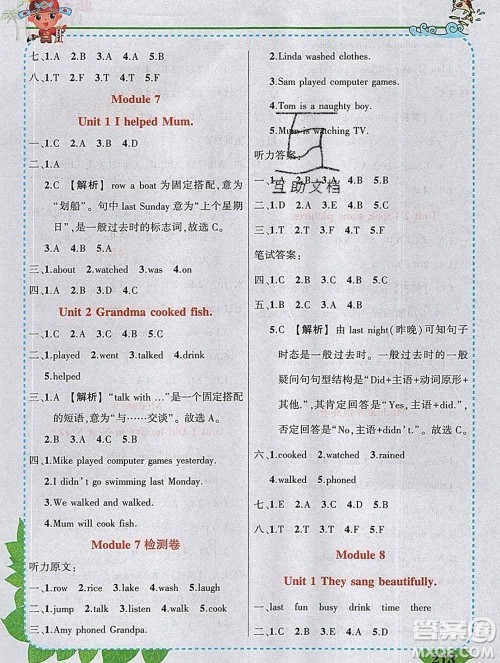 七、1.A 2.B 3.A 4.A 5.B
八、1.T 2.F 3.F 4.T 5.T
Module 7
Unit 1 I helped Mum.
一、1.C 2.A 3.B 4.D
二、1.A
2.C 【解析】row a boat 为固定搭配,意为
“划船”。句中 last Sunday 意为“上个星期
日”,是一般过去时的标志词,故选 C。
3.A 4.A 5.A
三、1.about 2.watched 3.was 4.on
四、1.A 2.D 3.C 4.B
Unit 2 Grandma cooked fish.
一、1.C 2.A 3.C 4.B 5.B
二、1.played 2.went 3.talked 4.drink
5.helped
三、1.A 【解析】“talk with …”是一个固定搭配
的短语,意为“与……交谈”。故选 A。
2.B 3.A 4.B 5.B
四、1.Mike played computer games yesterday.
2.I didn't go swimming last Monday.
3.We walked and walked.
4.Mum will cook fish.
Module 7 检测卷
听力原文:
一、1.row 2.rice 3.lake 4.wash 5.laugh
二、1.jump 2.talk 3.give 4.cook 5.listen
三、1.Amy phoned Grandpa.
2.Linda washed clothes.
3.Sam played computer games.
4.Tom is a naughty boy.
5.Mum is watching TV.
听力答案:
一、1.A 2.B 3.A 4.B 5.B
互助文档
二、1.D 2.B 3.E 4.A 5.C
三、1.T 2.F 3.T 4.T 5.F
笔试答案:
四、1.C 2.B 3.C 4.B 5.A
五、1.B 2.B 3.C 4.B
5.C 【解析】由 last night(昨晚)可知句子
时态是一般过去时。一般过去时的一般
疑问句句型结构是“Did+主语+动词原形+
其他.”,其肯定回答是“Yes, 主语+did.”,
否定回答是“No, 主语+didn't.”。故选 C。
六、1.cooked 2.watched 3.rained
4.walked 5.phoned
七、1.C 2.E 3.D 4.B 5.A
八、1.T 2.T 3.F 4.F 5.T
Module 8
Unit 1 They sang beautifully.
一、last fun busy drink time there
二、1.A 2.B 3.B 4.B 5.A
作业帮